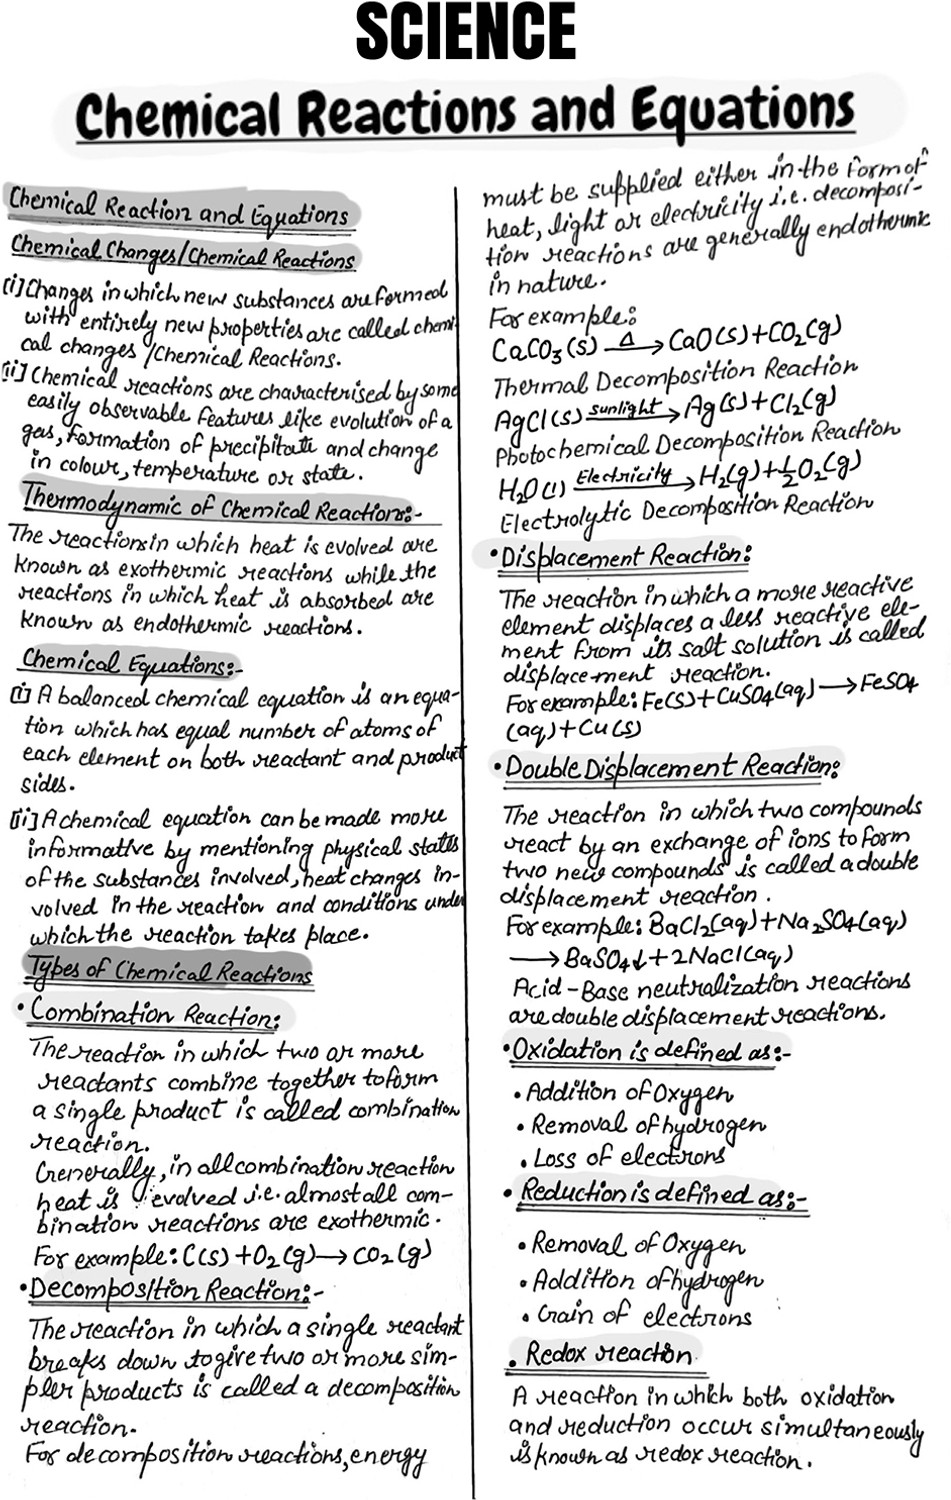 SCIENCE
Chemical Reactions and Equations
Chemical Reaction and Equations
Chemical Changes/Chemical Reactions
[i] Changes in which new substances are formed
with entirely new properties are called chemi-
cal changes /Chemical Reactions.
[ii] Chemical reactions are characterised by some
easily observable features like evolution of a
gas, formation of precipitate and change
in colour, temperature or state.
Thermodynamic of Chemical Reactions:-
The reactions in which heat is evolved are
known as exothermic reactions while the
reactions in which heat is absorbed are
known as endothermic reactions.
Chemical Equations:-
[i] A balanced chemical equation is an equa-
tion which has equal number of atoms of
each element on both reactant and product
sides.
[ii] A chemical equation can be made more
informative by mentioning physical states
of the substances involved, heat changes in-
volved in the reaction and conditions under
which the reaction takes place.
Types of Chemical Reactions
• Combination Reaction:
The reaction in which two or more
reactants combine together to form
a single product is called combination
reaction.
Generally, in all combination reaction
heat is evolved i.e. almost all com-
bination reactions are exothermic.
For example: C(s) + O₂(g) → CO₂(g)
• Decomposition Reaction:-
The reaction in which a single reactant
breaks down to give two or more sim-
pler products is called a decomposition
reaction.
For decomposition reactions, energy
must be supplied either in the form of
heat, light or electricity i.e. decomposi-
tion reactions are generally endothermic
in nature.
For example:
CaCO₃(s) —Δ→ CaO(s) + CO₂(g)
Thermal Decomposition Reaction
AgCl(s) —sunlight→ Ag(s) + Cl₂(g)
Photochemical Decomposition Reaction
H₂O(l) —Electricity→ H₂(g) + ½O₂(g)
Electrolytic Decomposition Reaction
• Displacement Reaction:
The reaction in which a more reactive
element displaces a less reactive ele-
ment from its salt solution is called
displace-ment reaction.
For example: Fe(s) + CuSO₄(aq) → FeSO₄
(aq) + Cu(s)
• Double Displacement Reaction:
The reaction in which two compounds
react by an exchange of ions to form
two new compounds is called a double
displacement reaction.
For example: BaCl₂(aq) + Na₂SO₄(aq)
→ BaSO₄↓ + 2NaCl(aq)
Acid-Base neutralization reactions
are double displacement reactions.
• Oxidation is defined as:-
• Addition of Oxygen
• Removal of hydrogen
• Loss of electrons
• Reduction is defined as:-
• Removal of Oxygen
• Addition of hydrogen
• Gain of electrons
• Redox reaction
A reaction in which both oxidation
and reduction occur simultaneously
is known as redox reaction.